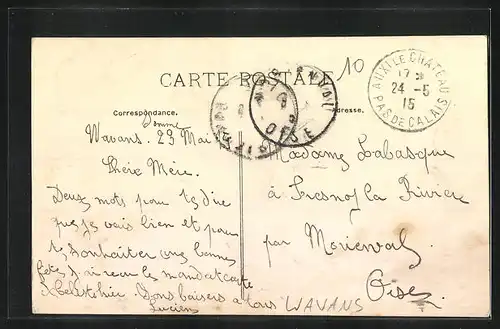 10
CARTE POSTALE
AUXI LE CHATEAU
24 - 5
15
PAS DE CALAIS
OISE
Correspondance.
Adresse.
Wavans. 23 Mai
Chère Mère.
Deux mots pour te dire
que je vais bien et pour
te souhaiter une bonne
fête, j'ai reçu le mandat carte
Bons baisers a tous
Lucien
WAVANS
Madame Labasque
à Fresnoy la Rivière
par Morienval
Oise